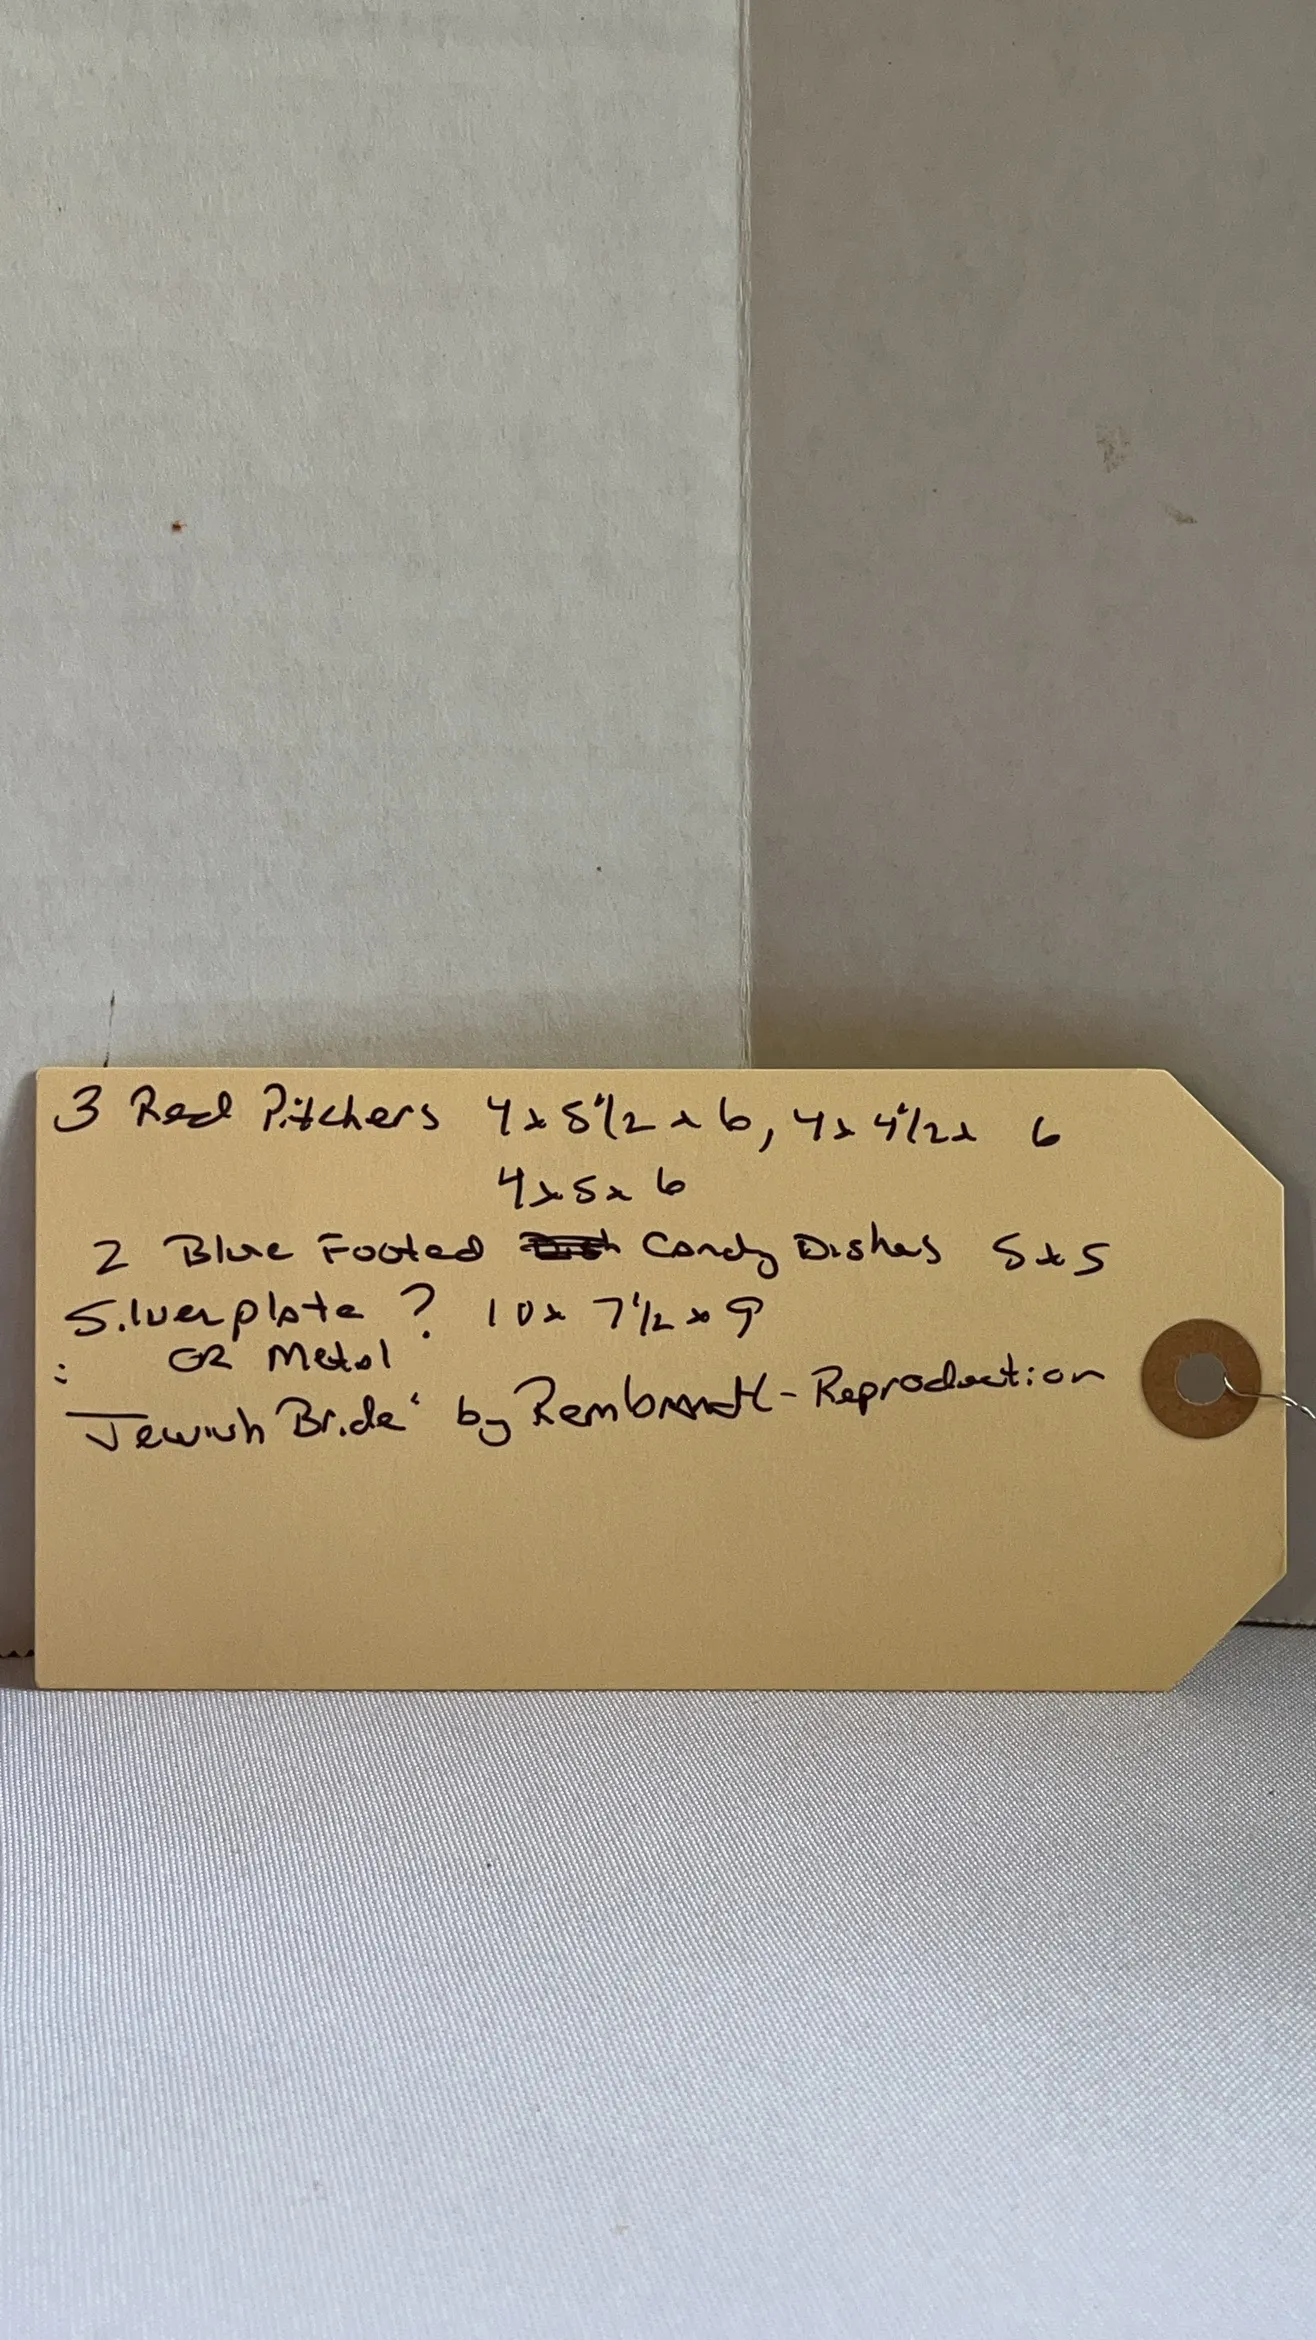 3 Red Pitchers 4x5 1/2 x 6, 4x 4 1/2 x 6
4x5x 6
2 Blue Footed Candy Dishes 5x5
Silverplate ? 10x 7 1/2 x 9
OR Metal
"Jewish Bride" by Rembrandt - Reproduction